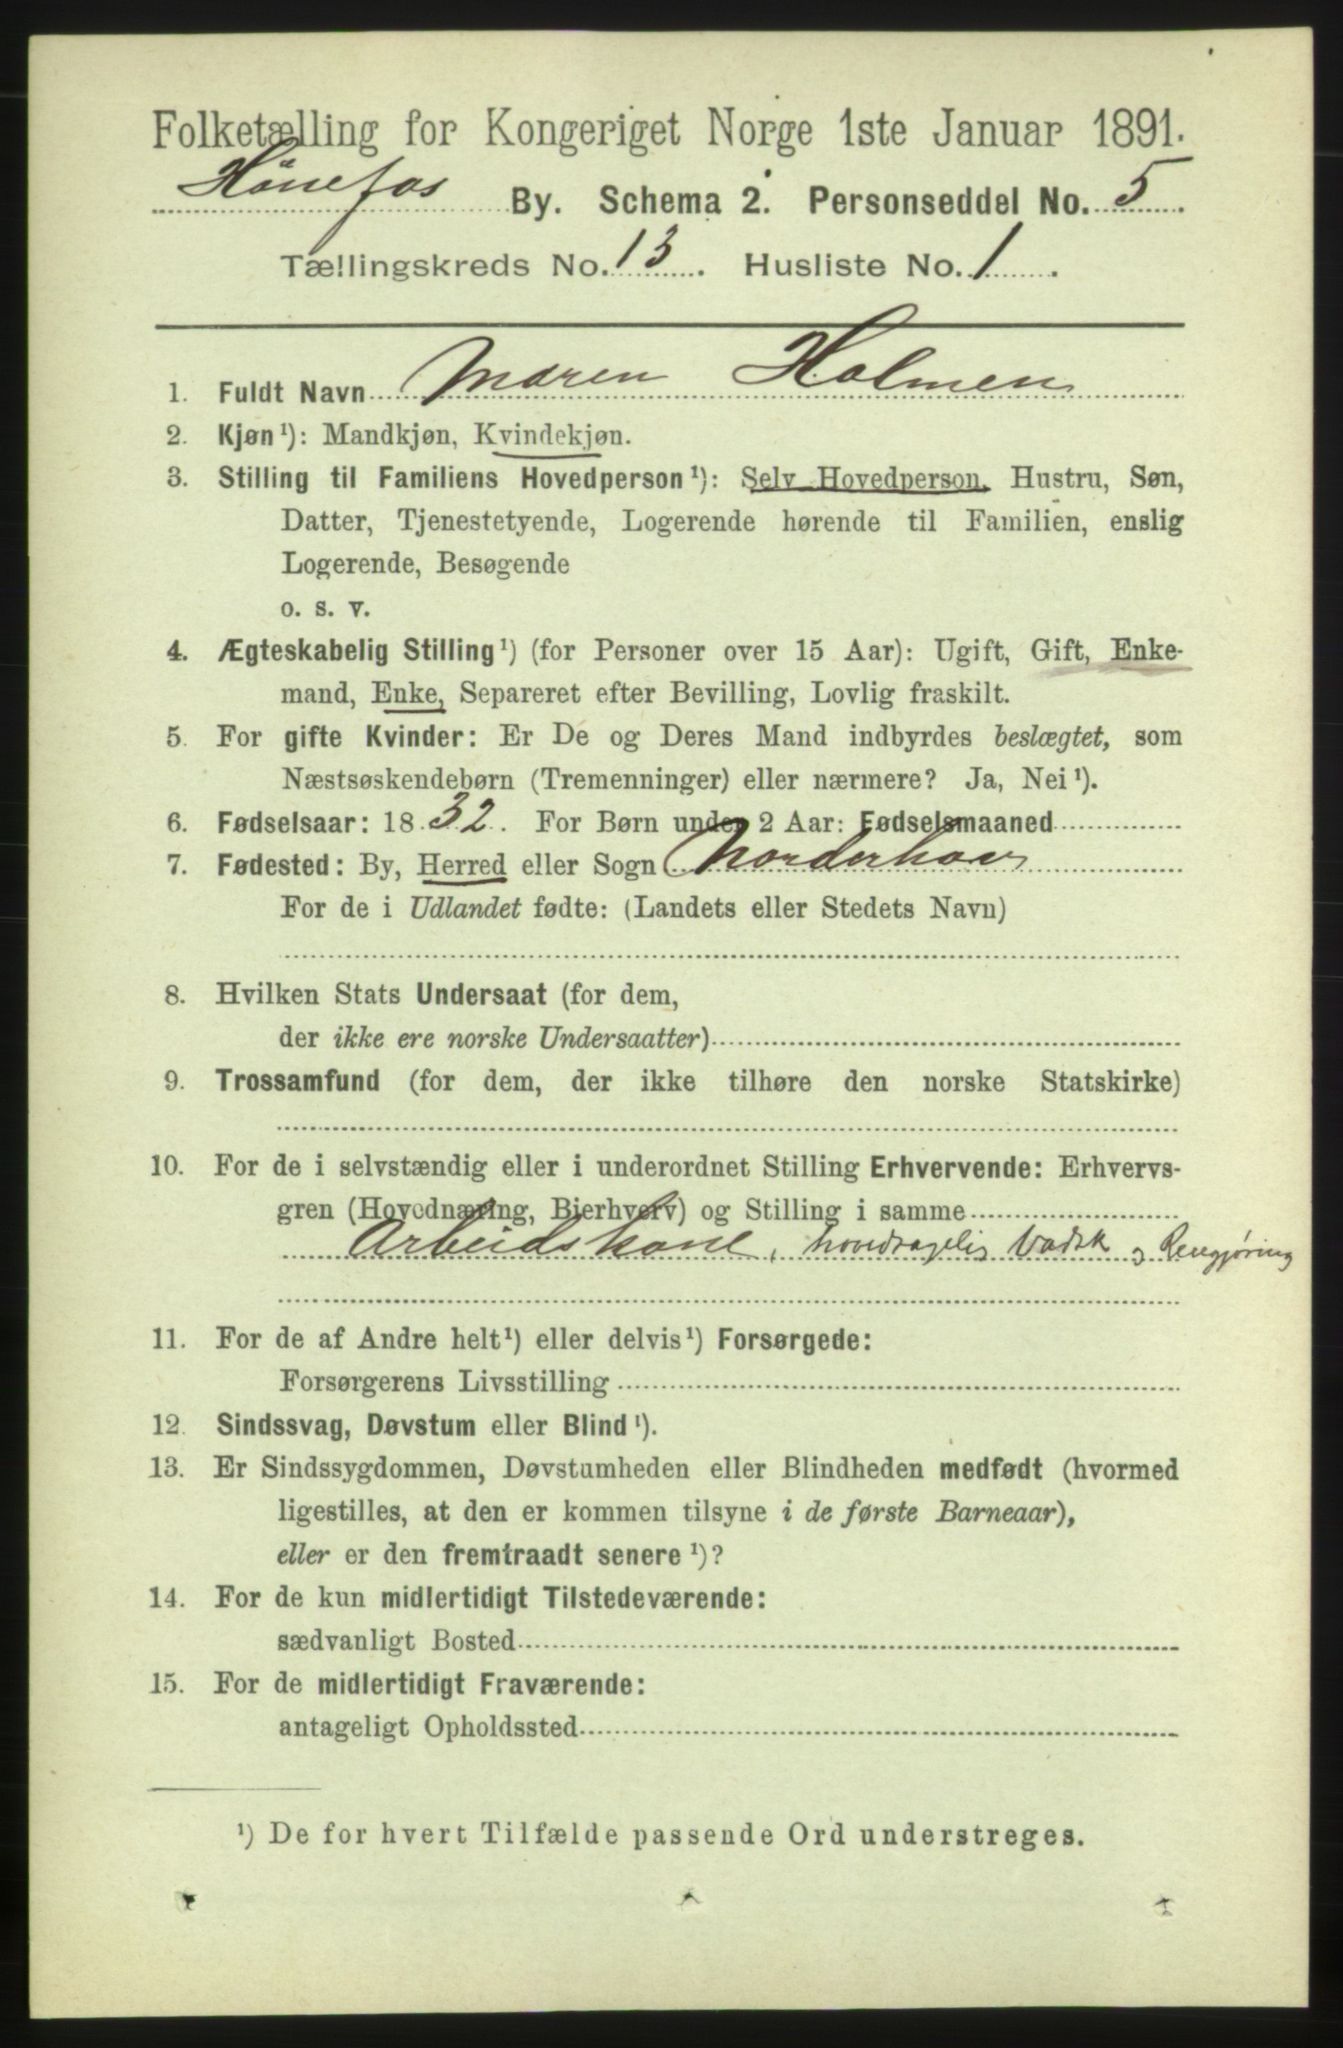 Folketælling for Kongeriget Norge 1ste Januar 1891.
Hönefos By. Schema 2. Personseddel No. 5.
Tællingskreds No. 13. Husliste No. 1.
1. Fuldt Navn Maren Holmen
2. Kjøn¹): Mandkjøn, Kvindekjøn.
3. Stilling til Familiens Hovedperson¹): Selv Hovedperson, Hustru, Søn,
Datter, Tjenestetyende, Logerende hørende til Familien, enslig
Logerende, Besøgende
o. s. v.
4. Ægteskabelig Stilling¹) (for Personer over 15 Aar): Ugift, Gift, Enke-
mand, Enke, Separeret efter Bevilling, Lovlig fraskilt.
5. For gifte Kvinder: Er De og Deres Mand indbyrdes beslægtet, som
Næstsøskendebørn (Tremenninger) eller nærmere? Ja, Nei¹).
6. Fødselsaar: 1832. For Børn under 2 Aar: Fødselsmaaned
7. Fødested: By, Herred eller Sogn Norderhov
For de i Udlandet fødte: (Landets eller Stedets Navn)
8. Hvilken Stats Undersaat (for dem,
der ikke ere norske Undersaatter)
9. Trossamfund (for dem, der ikke tilhøre den norske Statskirke)
10. For de i selvstændig eller i underordnet Stilling Erhvervende: Erhvervs-
gren (Hovednæring, Bierhverv) og Stilling i samme
Arbeidskone, hovedsagelig Vadsk og Rengjøring
11. For de af Andre helt¹) eller delvis¹) Forsørgede:
Forsørgerens Livsstilling
12. Sindssvag, Døvstum eller Blind¹).
13. Er Sindssygdommen, Døvstumheden eller Blindheden medfødt (hvormed
ligestilles, at den er kommen tilsyne i de første Barneaar),
eller er den fremtraadt senere¹)?
14. For de kun midlertidigt Tilstedeværende:
sædvanligt Bosted
15. For de midlertidigt Fraværende:
antageligt Opholdssted
¹) De for hvert Tilfælde passende Ord understreges.